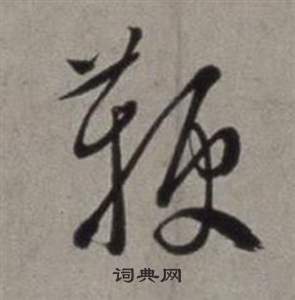 鞭
词典网